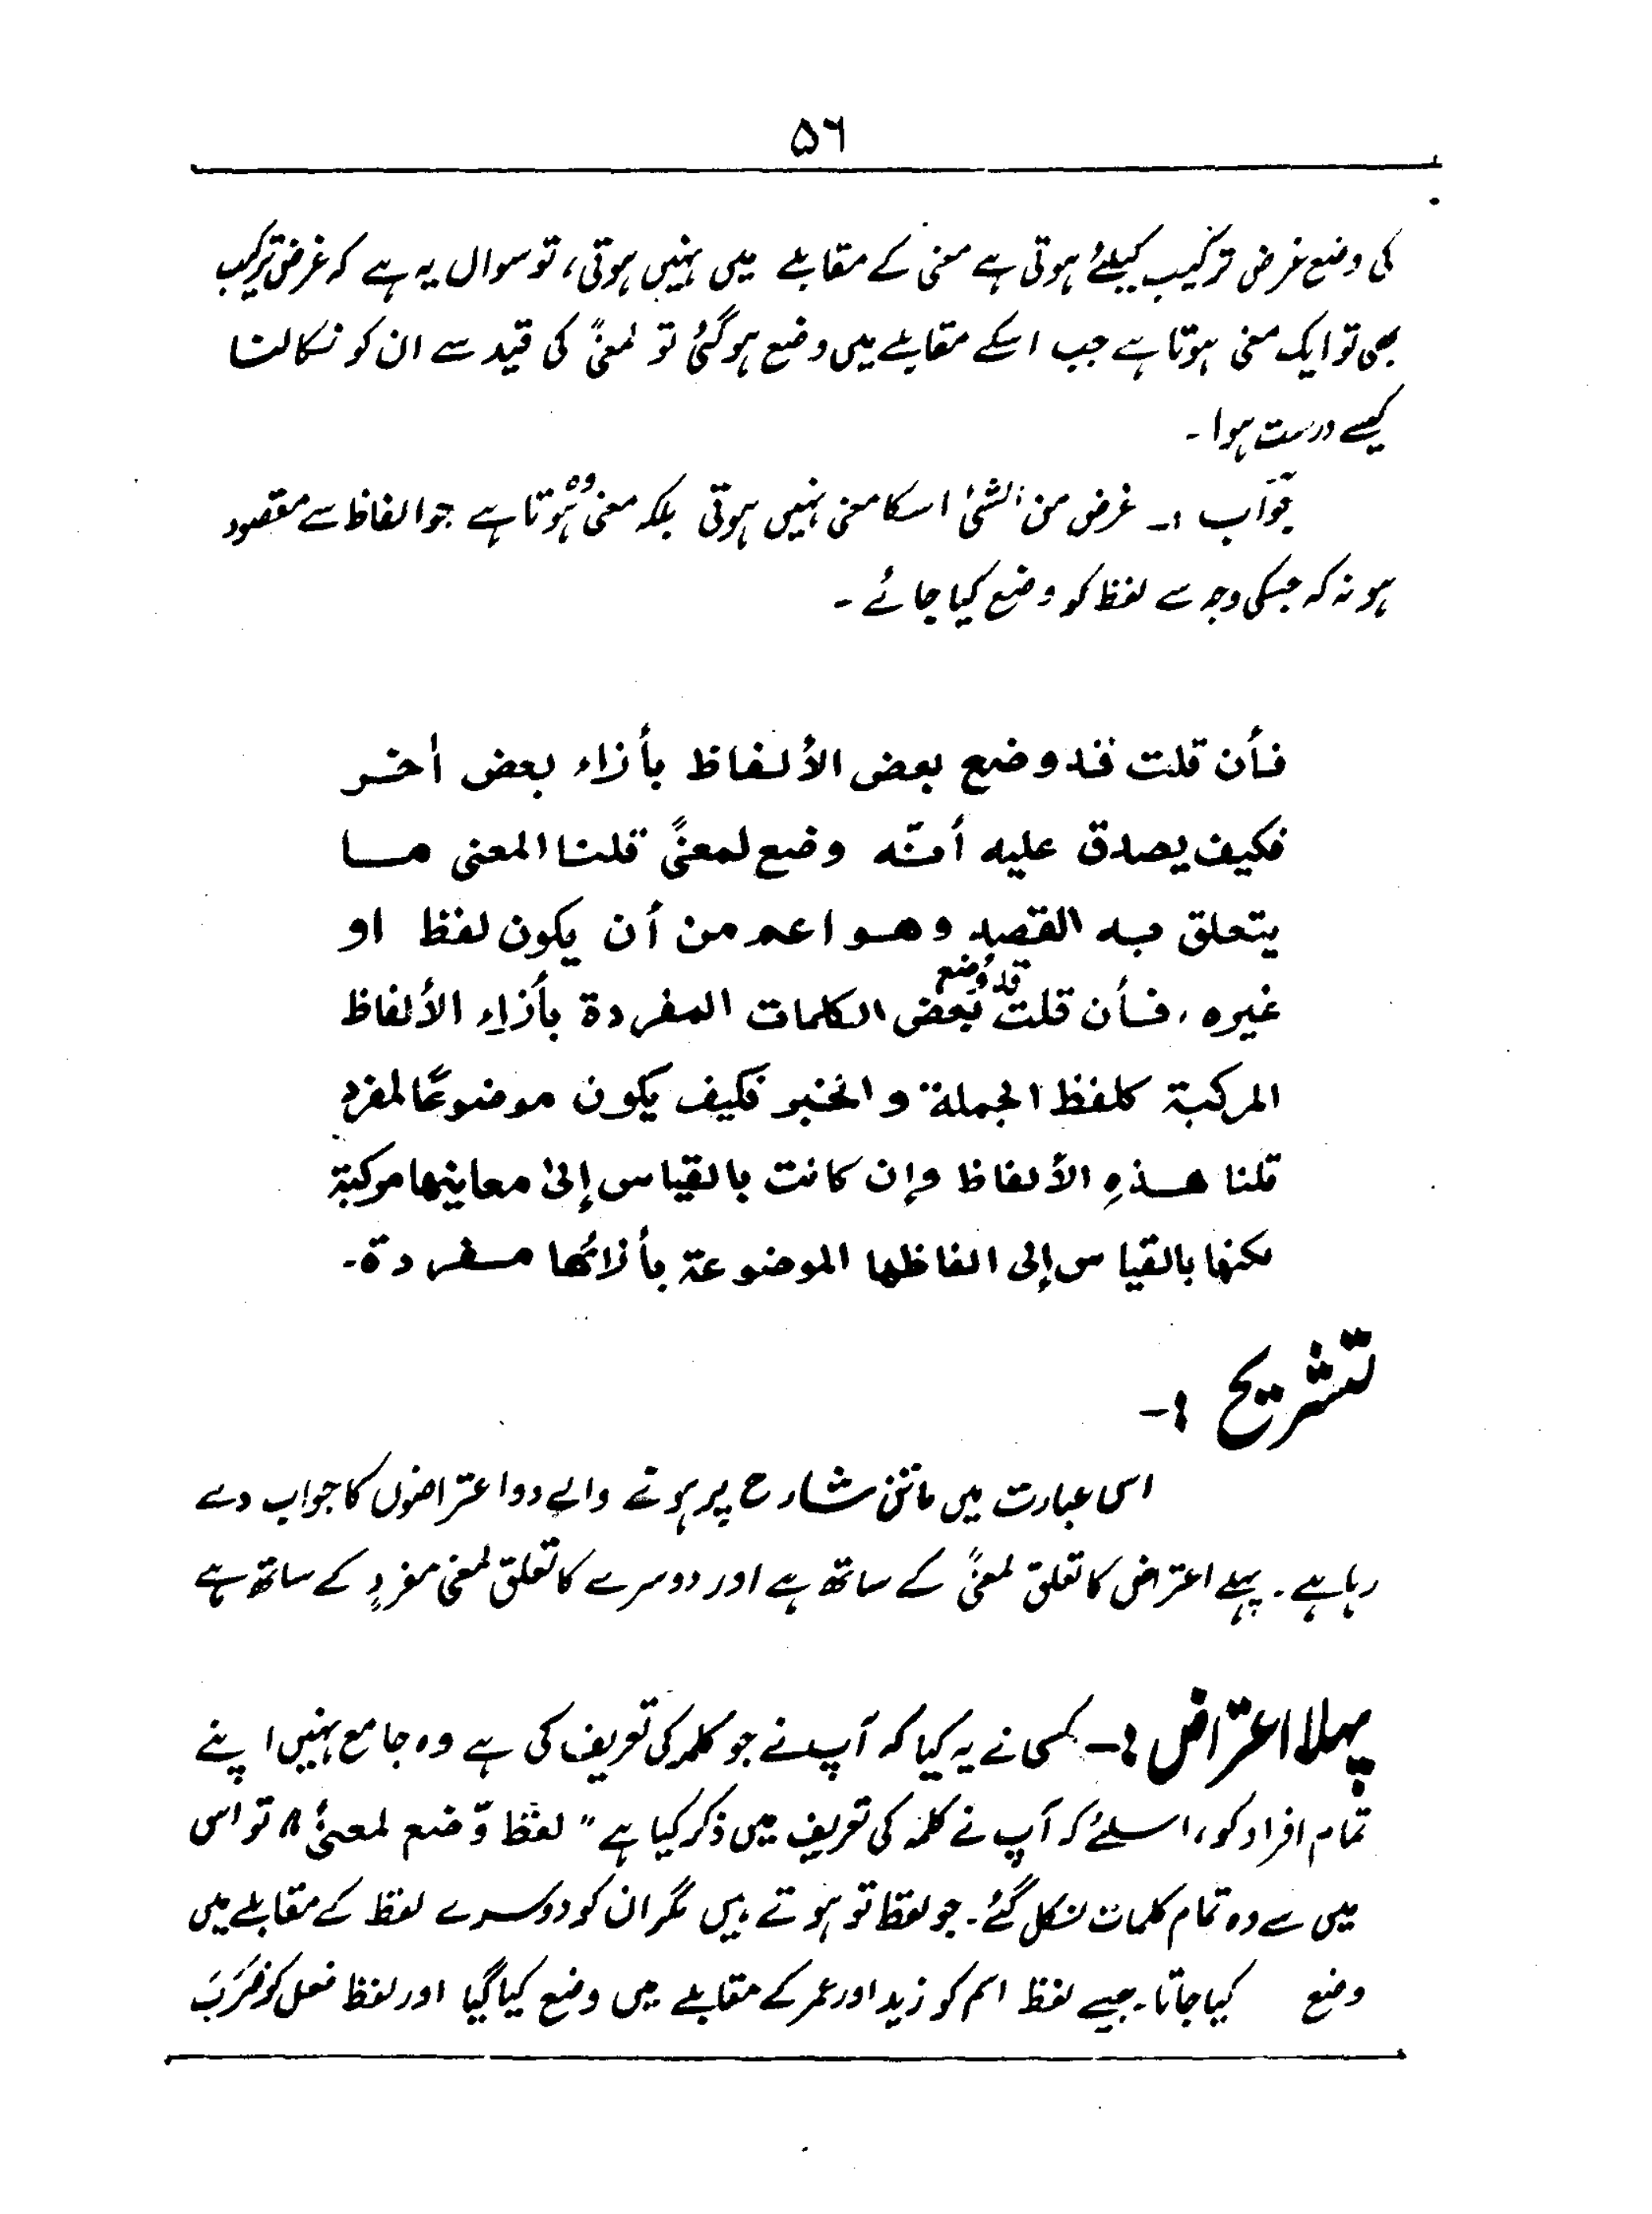 ۵۶
کی وضع غرض ترکیب کیلئے ہوتی ہے معنی کے مقابلے میں نہیں ہوتی، تو سوال یہ ہے کہ غرض ترکیب
بھی تو ایک معنی ہوتا ہے جب اسکے مقابلے میں وضع ہوگئی تو لمعنیً کی قید سے ان کو نکالنا
کیسے درست ہوا ۔
جواب :۔ غرض من الشئ اسکا معنی نہیں ہوتی بلکہ معنی وہ ہوتا ہے جو الفاظ سے مقصود
ہو نہ کہ جسکی وجہ سے لفظ کو وضع کیا جائے ۔
فأن قلت قد وضع بعض الألفاظ بأزاء بعض أخر
فكيف يصدق عليه أنّه وضع لمعنیً قلنا المعنى ما
يتعلق به القصد وهو اعم من أن يكون لفظ او
غيره ، فأن قلت قد وُضع بعض الكلمات المفردة بأزاءِ الألفاظ
المركبة كلفظ الجملة و الخبر فكيف يكون موضوعًا لمفردٍ
قلنا هذهِ الألفاظ وإن كانت بالقياس إلىٰ معانيها مركبة
لكنها بالقياس إلى الفاظها الموضوعة بأزائها مفردة ۔
تشریح :۔
اس عبارت میں ماتن شارح پر ہونے والے دو اعتراضوں کا جواب دے
رہا ہے ۔ پہلے اعتراض کا تعلق لمعنیً کے ساتھ ہے اور دوسرے کا تعلق لمعنی مفردٍ کے ساتھ ہے
پہلا اعتراض :۔ کسی نے یہ کیا کہ آپ نے جو کلمہ کی تعریف کی ہے وہ جامع نہیں اپنے
تمام افراد کو ، اسلئے کہ آپ نے کلمہ کی تعریف میں ذکر کیا ہے " لفظ وّضع لمعنیً " تو اس
میں سے وہ تمام کلمات نکل گئے ۔ جو لفظ تو ہوتے ہیں مگر ان کو دوسرے لفظ کے مقابلے میں
وضع کیا جاتا ۔ جیسے لفظ اسم کو زید اور عمر کے مقابلے میں وضع کیا گیا اور لفظ فعل کو ضَرَبَ